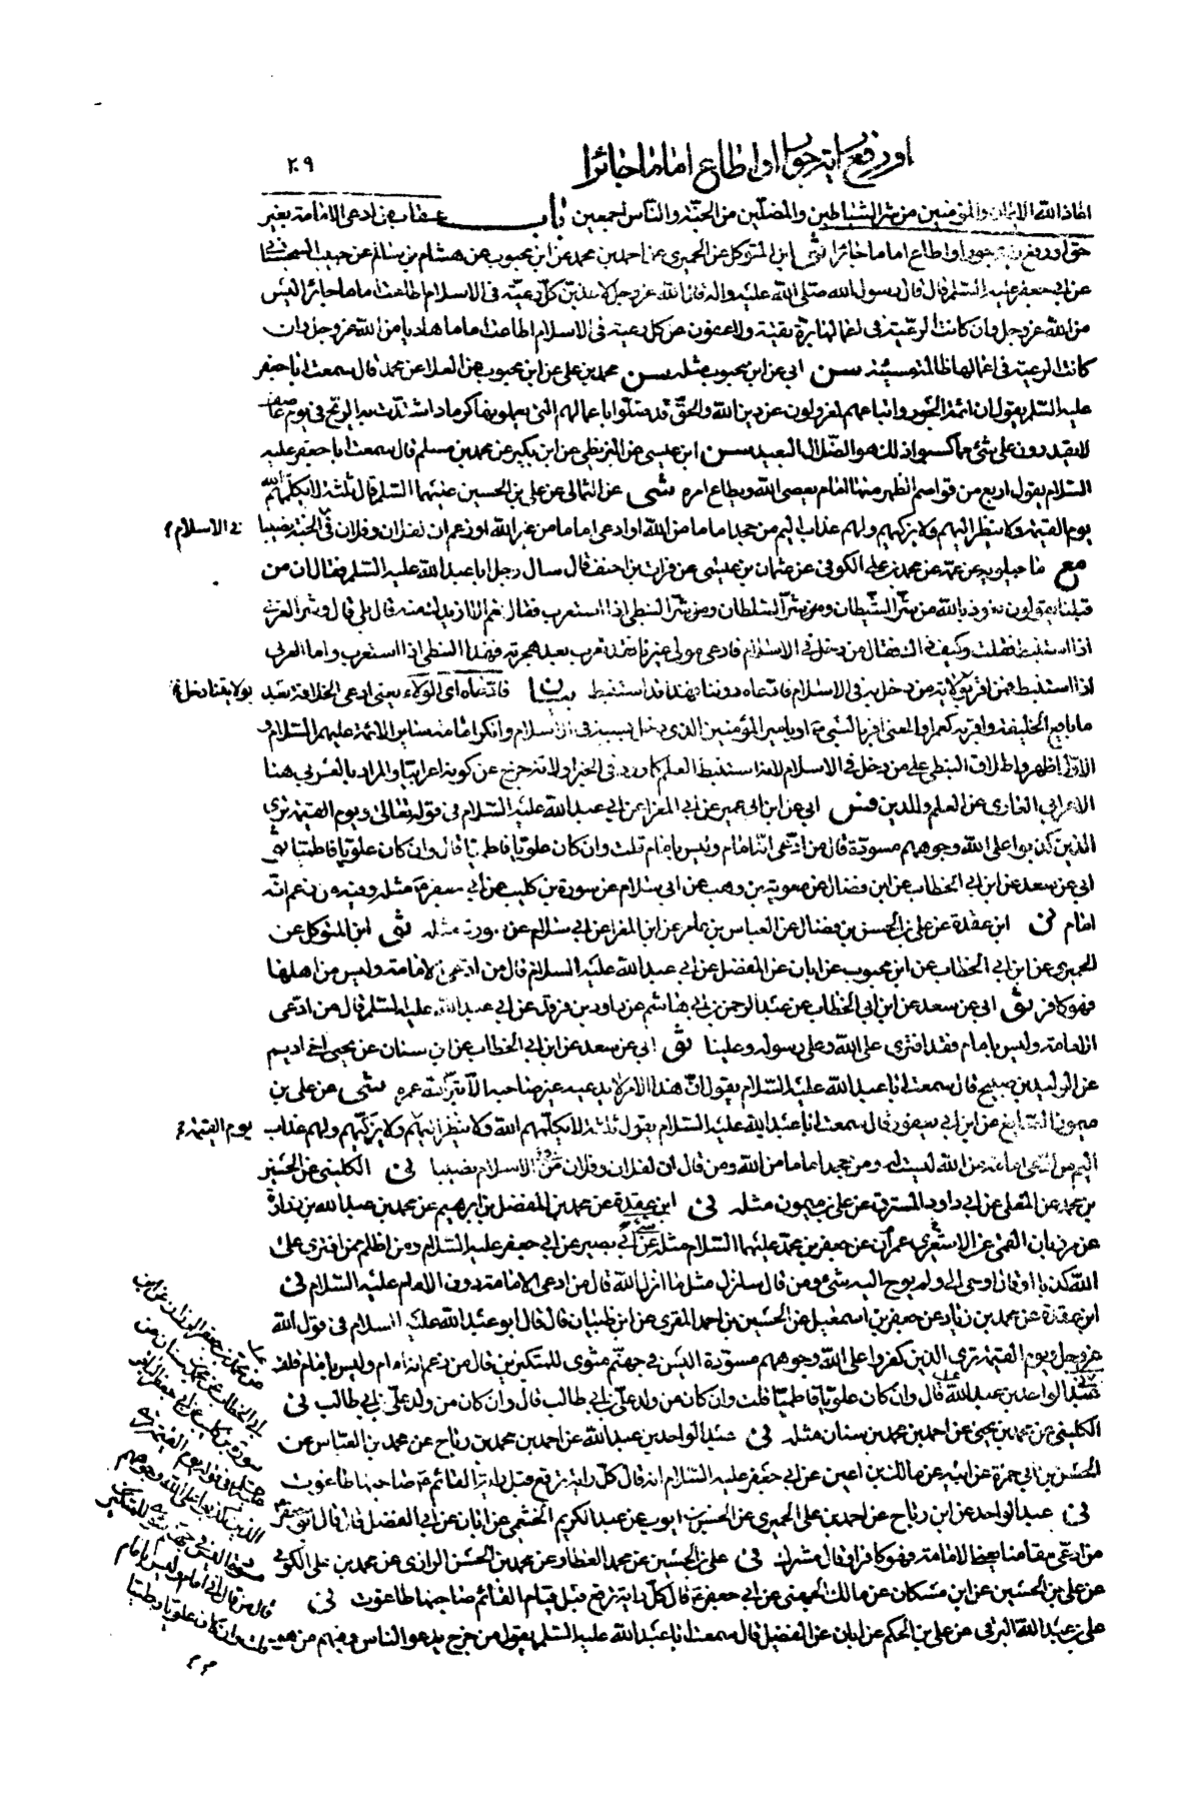 او رفع راية جور او اطاع اماما جائرا
٢٠٩
اعاذنا الله الايمان والمؤمنين من شر الشياطين والمضلين من الجنة والناس اجمعين باب عقاب من ادعى الامامة بغير
حق او رفع راية جور او اطاع اماما جائرا ابن المتوكل عن الحميري عن احمد بن محمد عن ابن محبوب عن هشام بن سالم عن حبيب السجستاني
عن ابي جعفر عليه السلم قال قال رسول الله صلى الله عليه واله قال الله عز وجل لاعذبن كل رعية في الاسلام اطاعت اماما جائرا ليس
من الله عز وجل وان كانت الرعية في اعمالها برة تقية ولاعفون عن كل رعية في الاسلام اطاعت اماما هاديا من الله عز وجل وان
كانت الرعية في اعمالها ظالمة مسيئة سن ابي عن ابن محبوب مثله سن محمد بن علي عن ابن محبوب عن العلا عن محمد قال سمعت ابا جعفر
عليه السلم يقول ان ائمة الجور واتباعهم لمعزولون عن دين الله والحق قد ضلوا باعمالهم التي يعملونها كرماد اشتدت به الريح في يوم عاصف
لا يقدرون على شئ مما كسبوا ذلك هو الضلال البعيد سن ابن عيسى عن البزنطي عن ابن بكير عن محمد بن مسلم قال سمعت ابا جعفر عليه
السلام يقول اربع من قواصم الظهر منها امام يعصي الله ويطاع امره شى عن الثمالي عن علي بن الحسين عليهما السلم قال ثلثة لا يكلمهم الله
يوم القيمة ولا ينظر اليهم ولا يزكيهم ولهم عذاب اليم من جحد اماما من الله او ادعى اماما من غير الله او زعم ان لفلان وفلان في الجنة نصيبا في الاسلام
مع ماجيلويه عن عمه عن محمد بن علي الكوفي عن عثمان بن عيسى عن فرات بن احنف قال سال رجل ابا عبد الله عليه السلم فقال ان من
قبلنا يقولون نعوذ بالله من شر الشيطان ومن شر السلطان ومن شر النبطي اذا استعرب فقال نعم الا ازيدك منه قال بلى قال ومن شر العربي
اذا استنبط فقلت وكيف ذاك فقال من دخل في الاسلام فادعى مولى غيرنا فقد تعرب بعد هجرته فهذا النبطي اذا استعرب واما العربي
اذا استنبط فمن اقر بولاية من دخل به في الاسلام فادعاه دوننا فهذا قد استنبط بيان فادعاه اى الولاء يعني ادعى الخلافة بعد بولايتنا دخل
ما بايع الخليفة واقر به كعمر او المعنى اقر بالنبي او بامير المؤمنين الذي دخل بسببه في الاسلام وانكر امامة ساير الائمة عليهم السلام و
الاول اظهر واطلاق النبطي على من دخل في الاسلام لانه استنبط العلم كما ورد في الخبر او لانه خرج عن كونه اعرابيا والمراد بالعربي هنا
الاعرابي العاري عن العلم والدين فس ابي عن ابن ابي عمير عن ابي المغرا عن ابي عبد الله عليه السلام في قوله تعالى ويوم القيمة ترى
الذين كذبوا على الله وجوههم مسودة قال من ادعى انه امام وليس بامام قلت وان كان علويا فاطميا قال وان كان علويا فاطميا
ابي عن سعد عن ابن ابي الخطاب عن ابن فضال عن معوية بن وهب عن ابي سلام عن سورة بن كليب عن ابي جعفر مثله وفيه من زعم انه
امام نى ابن عقدة عن علي بن الحسن بن فضال عن العباس بن عامر عن ابي المغرا عن ابي سلام عن سورة مثله ابن المتوكل عن
الحميري عن ابن ابي الخطاب عن ابن محبوب عن ابان عن المفضل عن ابي عبد الله عليه السلام قال من ادعى الامامة وليس من اهلها
فهو كافر ابي عن سعد عن ابن ابي الخطاب عن عبد الرحمن بن ابي هاشم عن داود بن فرقد عن ابي عبد الله عليه السلم قال من ادعى
الامامة وليس بامام فقد افترى على الله وعلى رسوله وعلينا ابي عن سعد عن ابن ابي الخطاب عن ابن سنان عن يحيى اخي اديم
عن الوليد بن صبيح قال سمعت ابا عبد الله عليه السلام يقول ان هذا الامر لا يدعيه غير صاحبه الا بتر الله عمره شى عن علي بن
ميمون الصائغ عن ابن ابي يعفور قال سمعت ابا عبد الله عليه السلام يقول ثلثة لا يكلمهم الله ولا ينظر اليهم ولا يزكيهم ولهم عذاب يوم القيمة
اليم من ادعى امامة من الله ليست له ومن جحد اماما من الله ومن قال ان لفلان وفلان في الاسلام نصيبا نى الكليني عن الحسين
بن محمد عن المعلى عن ابي داود المسترق عن علي بن ميمون مثله نى ابن عقدة عن محمد بن المفضل بن ابرهيم عن محمد بن عبد الله بن زرارة
عن مرزبان القمي عن عمران الاشعري عن جعفر بن محمد عليهما السلام مثله شى عن ابي بصير عن ابي جعفر عليه السلام ومن اظلم ممن افترى على
الله كذبا او قال اوحي الي ولم يوح اليه شئ ومن قال سانزل مثل ما انزل الله قال من ادعى الامامة دون الامام عليه السلام نى
ابن عقدة عن محمد بن زياد عن جعفر بن اسمعيل عن الحسين بن احمد المقري عن ابن ظبيان قال قال ابو عبد الله عليه السلام في قول الله
عز وجل ويوم القيمة ترى الذين كفروا على الله وجوههم مسودة اليس في جهنم مثوى للمتكبرين قال من زعم انه امام وليس بامام
عبد الواحد بن عبد الله قال وان كان علويا فاطميا قلت وان كان من ولد علي بن ابي طالب قال وان كان من ولد علي بن ابي طالب نى
الكليني عن محمد بن يحيى عن احمد بن محمد عن محمد بن سنان مثله نى عبد الواحد بن عبد الله عن احمد بن محمد بن رباح عن محمد بن العباس عن
الحسن بن ابي حمزة عن ابيه عن مالك بن اعين عن ابي جعفر عليه السلام انه قال كل راية ترفع قبل راية القائم صاحبها طاغوت
نى عبد الواحد عن ابن رباح عن احمد بن علي الحميري عن الحسن بن ايوب عن عبد الكريم الخثعمي عن ابان عن ابي الفضل قال قال ابو جعفر
من ادعى مقامنا يعني الامامة فهو كافر او قال مشرك نى علي بن الحسين عن محمد العطار عن محمد بن الحسن الرازي عن محمد بن علي الكوفي
عن علي بن الحسين عن ابن مسكان عن مالك الجهني عن ابي جعفر قال كل راية ترفع قبل قيام القائم صاحبها طاغوت نى
علي بن عبد الله البرقي عن علي بن الحكم عن ابان عن الفضيل قال سمعت ابا عبد الله عليه السلم يقول من خرج يدعو الناس وفيهم من هو
عن محمد بن جعفر الرزاز عن ابن
ابي الخطاب عن محمد بن سنان عن
سورة بن كليب عن ابي جعفر الباقر
في قوله ويوم القيمة ترى
الذين كذبوا على الله وجوههم
مسودة اليس في جهنم مثوى للمتكبرين
قال من قال اني امام وليس بامام
قلت وان كان علويا فاطميا